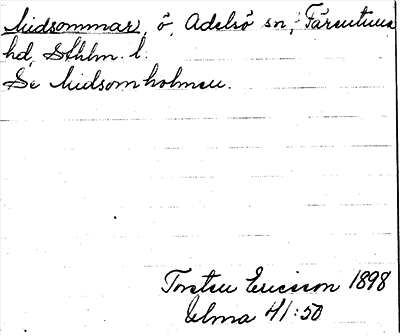 Midsommar, ö, Adelsö sn, Färentuna
hd, Sthlm. l.
Se Midsomholmen.
Torsten Ericsson 1898
Uema 41:50